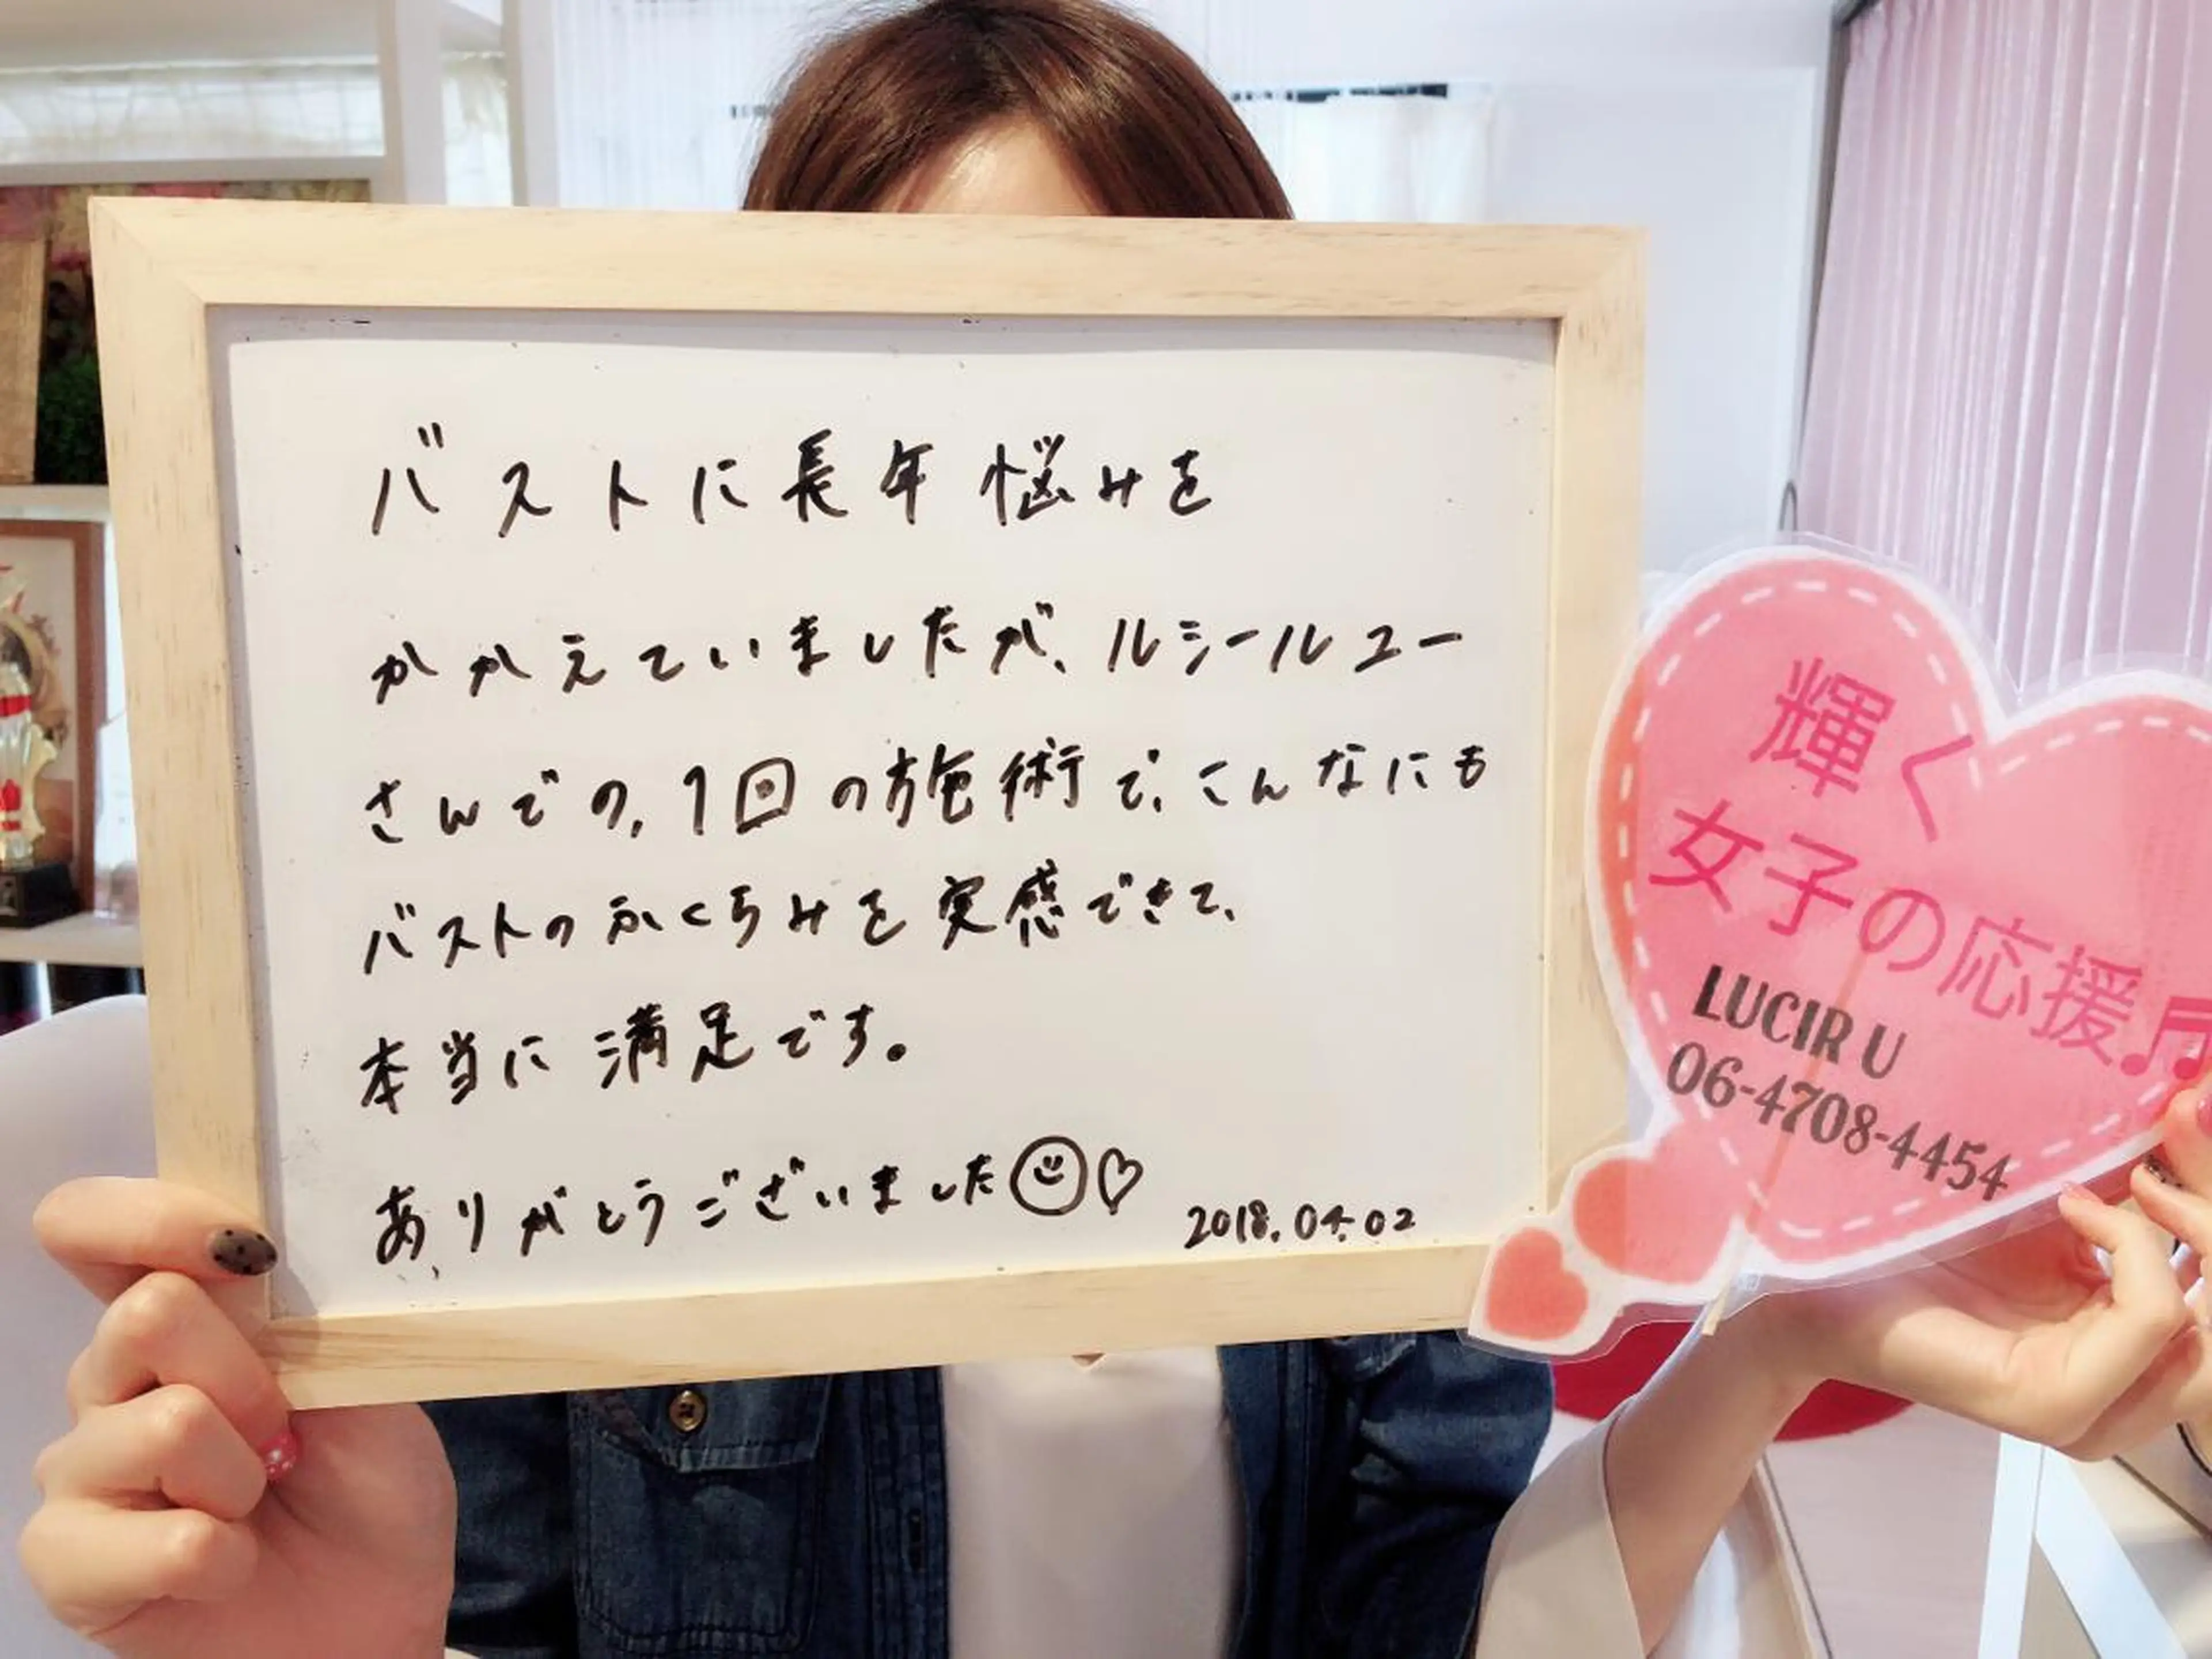 バストに長年悩みを
かかえていましたが、ルシールユー
さんでの、1回の施術で、こんなにも
バストのふくらみを実感できて、
本当に満足です。
ありがとうございました
2018.04.02
輝く
女子の応援♬
LUCIR U
06-4708-4454